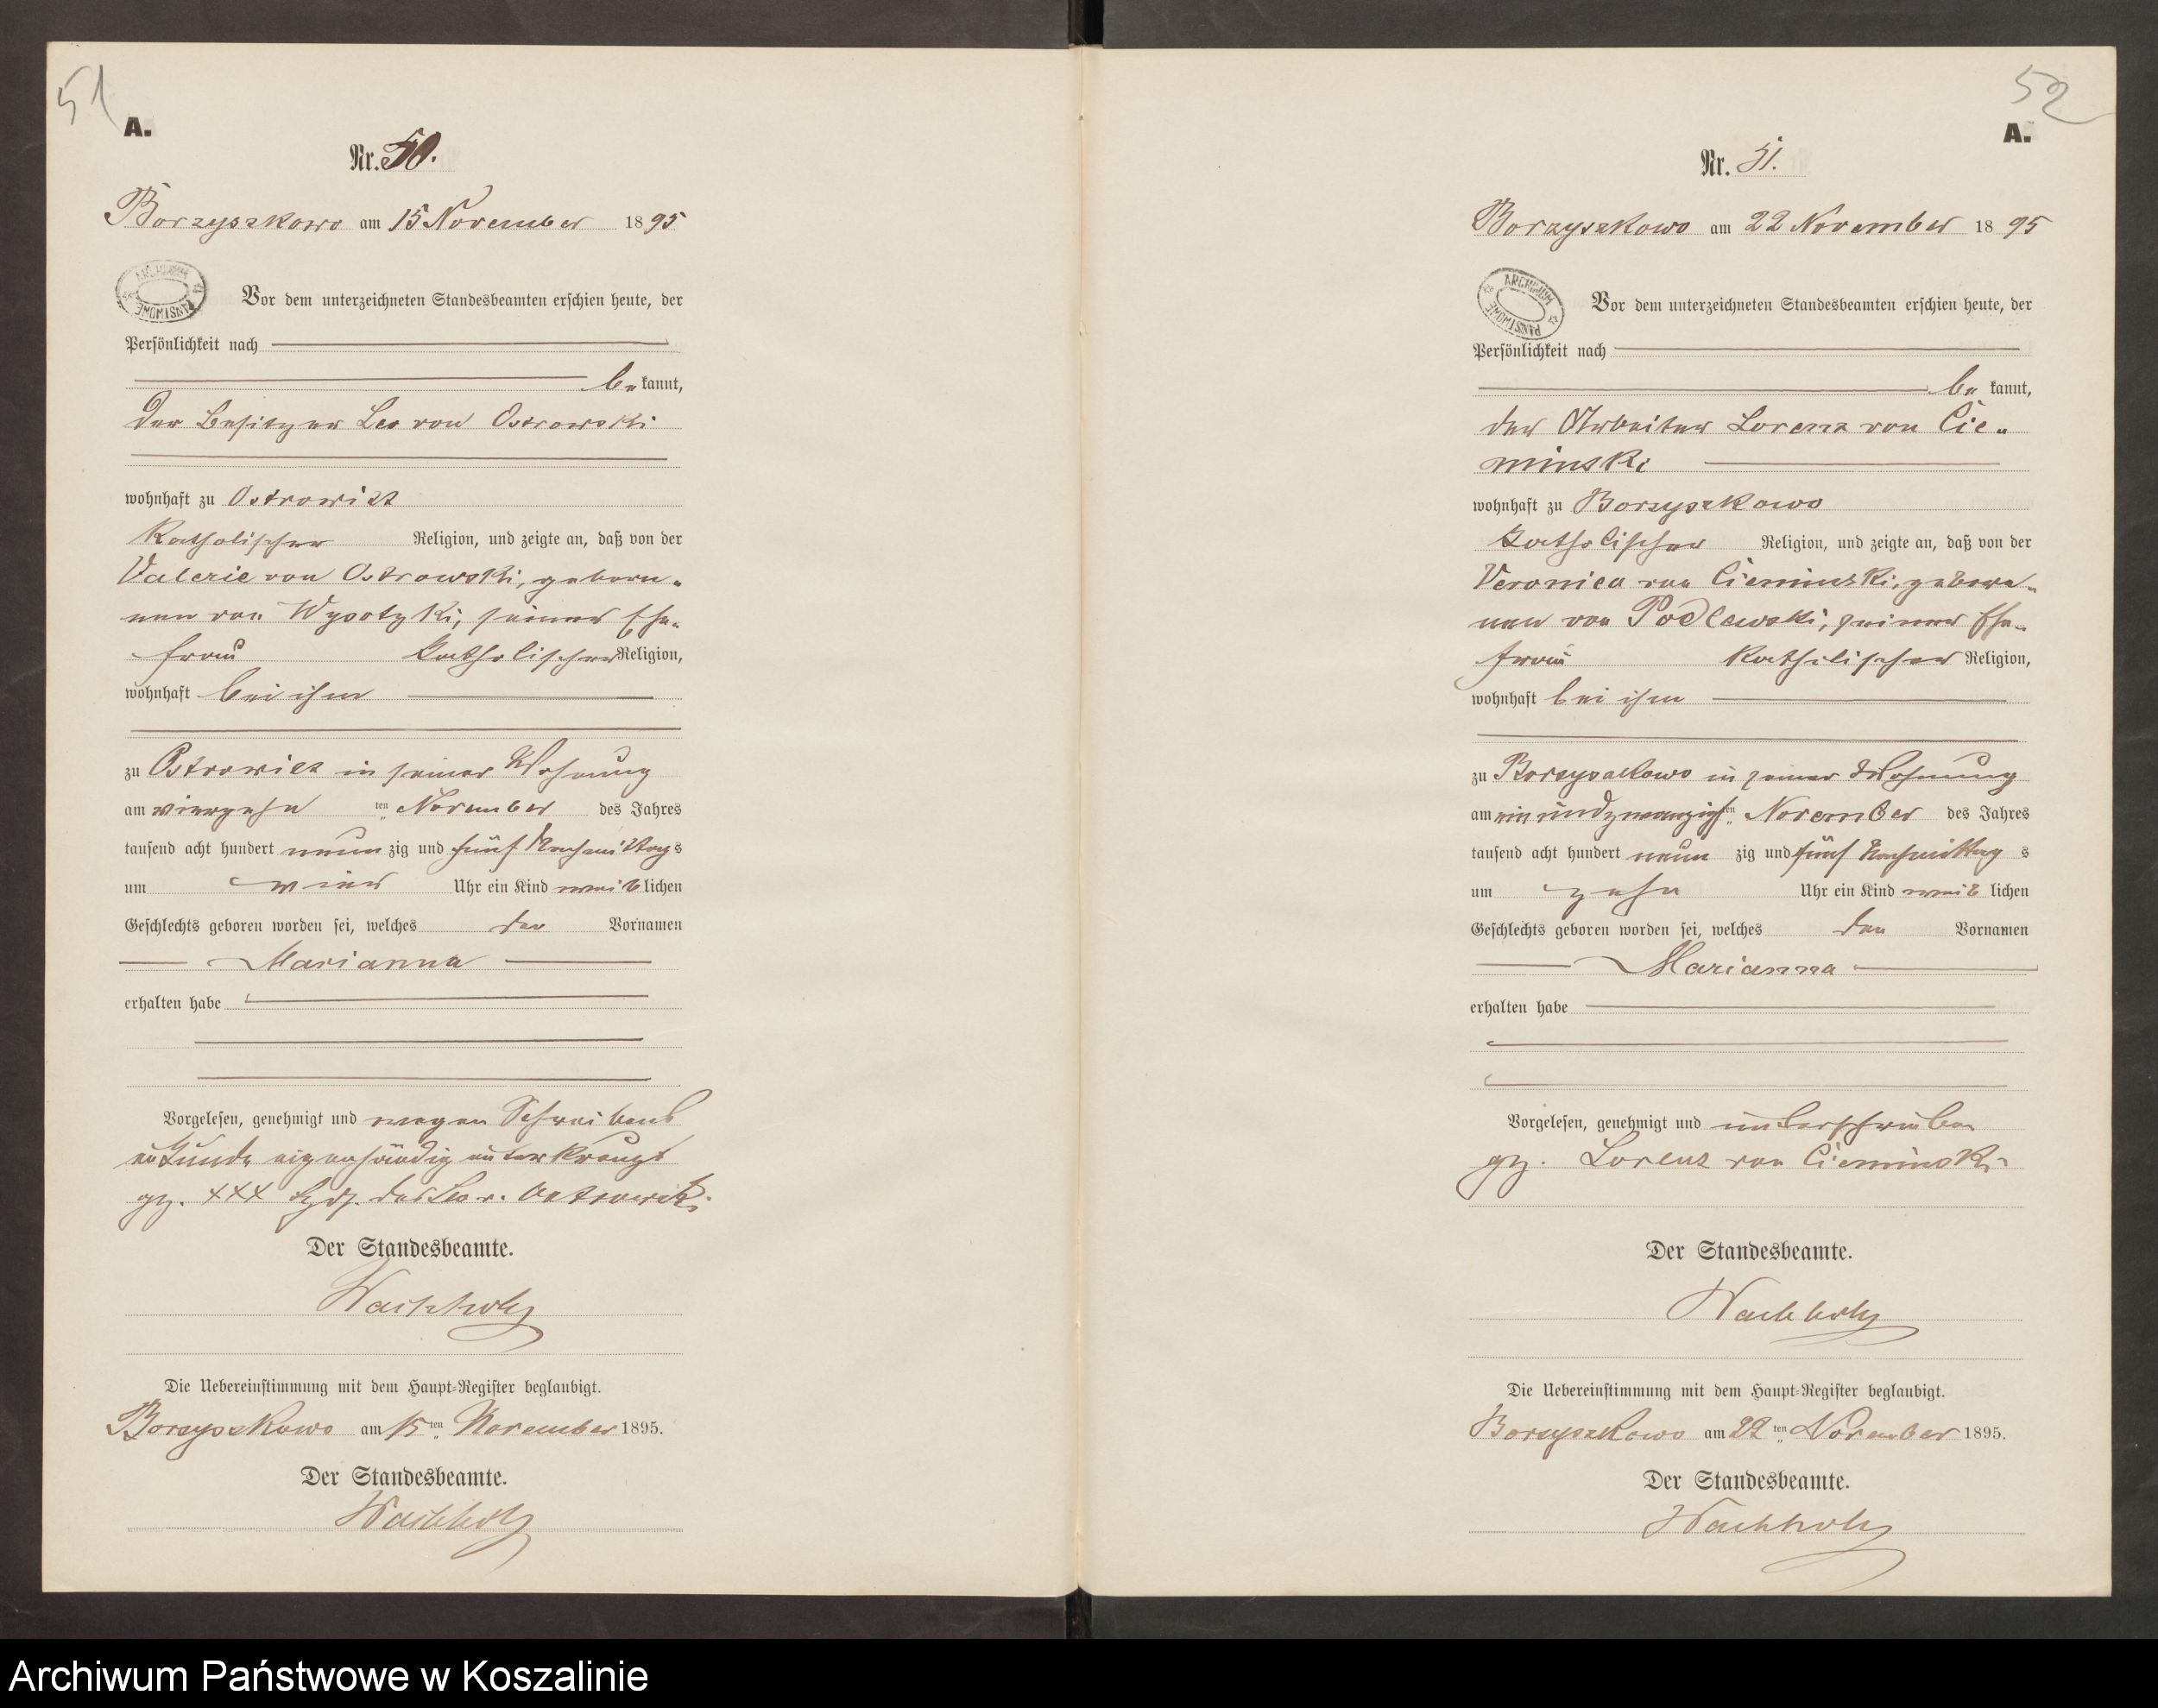 51
A.
Nr. 50.
Borzyszkowo am 15 November 1895
ARCHIWUM PAŃSTWOWE
Vor dem unterzeichneten Standesbeamten erschien heute, der
Persönlichkeit nach
bekannt,
der Besitzer Leo von Ostrowski
wohnhaft zu Ostrowitz
katholischer Religion, und zeigte an, daß von der
Valerie von Ostrowski, gebore-
nen von Wysotzki, seiner Ehe-
frau katholischer Religion,
wohnhaft bei ihm
zu Ostrowitz in seiner Wohnung
am vierzehn ten November des Jahres
tausend acht hundert neunzig und fünf Nachmittags
um vier Uhr ein Kind weiblichen
Geschlechts geboren worden sei, welches den Vornamen
Marianna
erhalten habe
Vorgelesen, genehmigt und wegen Schreibens
unkunde eigenhändig unterkreuzt
gz. +++ Hdz. des Leo v. Ostrowski
Der Standesbeamte.
Wachholz
Die Uebereinstimmung mit dem Haupt-Register beglaubigt.
Borzyszkowo am 15ten November 1895.
Der Standesbeamte.
Wachholz
52
A.
Nr. 51.
Borzyszkowo am 22 November 1895
ARCHIWUM PAŃSTWOWE
Vor dem unterzeichneten Standesbeamten erschien heute, der
Persönlichkeit nach
bekannt,
der Arbeiter Lorenz von Cie-
minski
wohnhaft zu Borzyszkowo
katholischer Religion, und zeigte an, daß von der
Veronica von Cieminski, gebore-
nen von Podlewski, seiner Ehe-
frau katholischer Religion,
wohnhaft bei ihm
zu Borzyszkowo in seiner Wohnung
am einundzwanzigsten November des Jahres
tausend acht hundert neunzig und fünf Nachmittags
um zehn Uhr ein Kind weiblichen
Geschlechts geboren worden sei, welches den Vornamen
Marianna
erhalten habe
Vorgelesen, genehmigt und unterschrieben
gz. Lorenz von Cieminski
Der Standesbeamte.
Wachholz
Die Uebereinstimmung mit dem Haupt-Register beglaubigt.
Borzyszkowo am 22ten November 1895.
Der Standesbeamte.
Wachholz
Archiwum Państwowe w Koszalinie